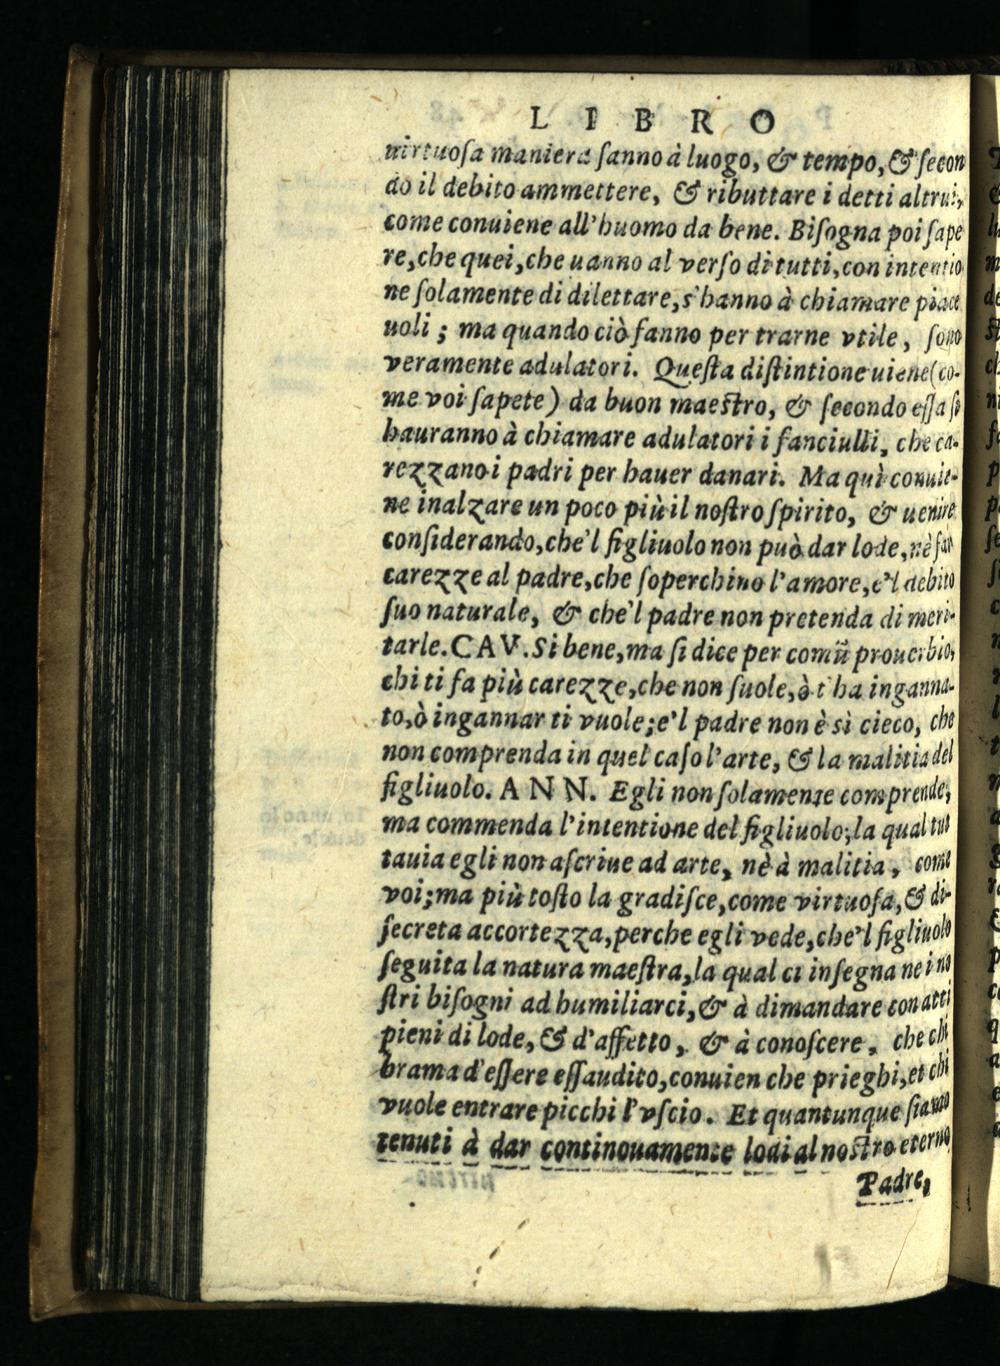 LIBRO
uirtuosa maniera sanno à luogo, & tempo, & secon
do il debito ammettere, & ributtare i detti altrui,
come conuiene all'huomo da bene. Bisogna poi sape
re, che quei, che uanno al verso di tutti, con intentio
ne solamente di dilettare, s'hanno à chiamare piace
uoli; ma quando ciò fanno per trarne vtile, sono
veramente adulatori. Questa distintione uiene (co-
me voi sapete) da buon maestro, & secondo essa si
hauranno à chiamare adulatori i fanciulli, che ca-
rezzano i padri per hauer danari. Ma quì conuie-
ne inalzare un poco più il nostro spirito, & uenire
considerando, che'l figliuolo non può dar lode, nè far
carezze al padre, che soperchino l'amore, e'l debito
suo naturale, & che'l padre non pretenda di meri-
tarle. CAV. Si bene, ma si dice per comũ prouerbio,
chi ti fa più carezze, che non suole, ò t'ha inganna-
to, ò ingannar ti vuole; e'l padre non è sì cieco, che
non comprenda in quel caso l'arte, & la malitia del
figliuolo. ANN. Egli non solamente comprende,
ma commenda l'intentione del figliuolo; la qual tut
tauia egli non ascriue ad arte, nè à malitia, come
voi; ma più tosto la gradisce, come virtuosa, & di-
secreta accortezza, perche egli vede, che'l figliuolo
seguita la natura maestra, la qual ci insegna ne i no
stri bisogni ad humiliarci, & à dimandare con atti
pieni di lode, & d'affetto, & à conoscere, che chi
brama d'essere essaudito, conuien che prieghi, et chi
vuole entrare picchi l'vscio. Et quantunque siamo
tenuti à dar continouamente lodi al nostro eterno
Padre,